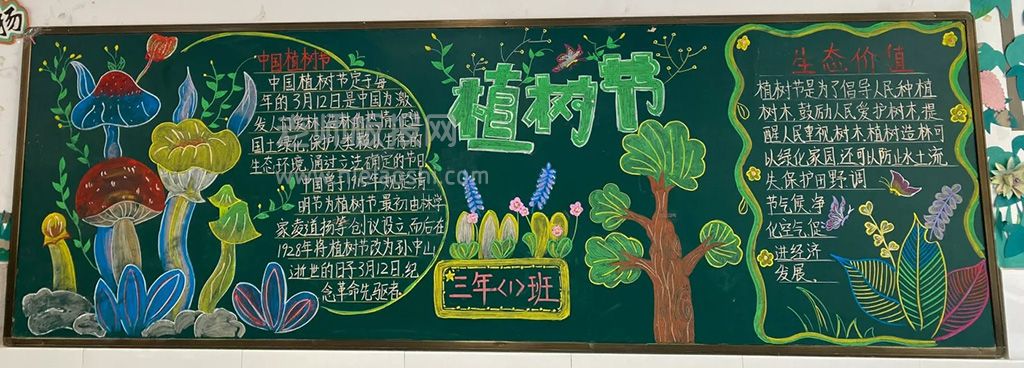 扬
中国植树节
中国植树节定于每
年的3月12日是中国为激
发人们爱林造林的热情,促进
国土绿化,保护人类赖以生存的
生态环境,通过立法确定的节日
中国曾于1915年规定清
明节为植树节最初由林学
家凌道扬等创议设立而后在
1928年将植树节改为孙中山
逝世的日子3月12日,纪
念革命先驱者
植树节
三年<1>班
生态价值
植树节是为了倡导人民种植
树木,鼓励人民爱护树木,提
醒人民重视树木植树造林可
以绿化家园还可以防止水土流
失保护田野调
节气候净
化空气促
进经济
发展。